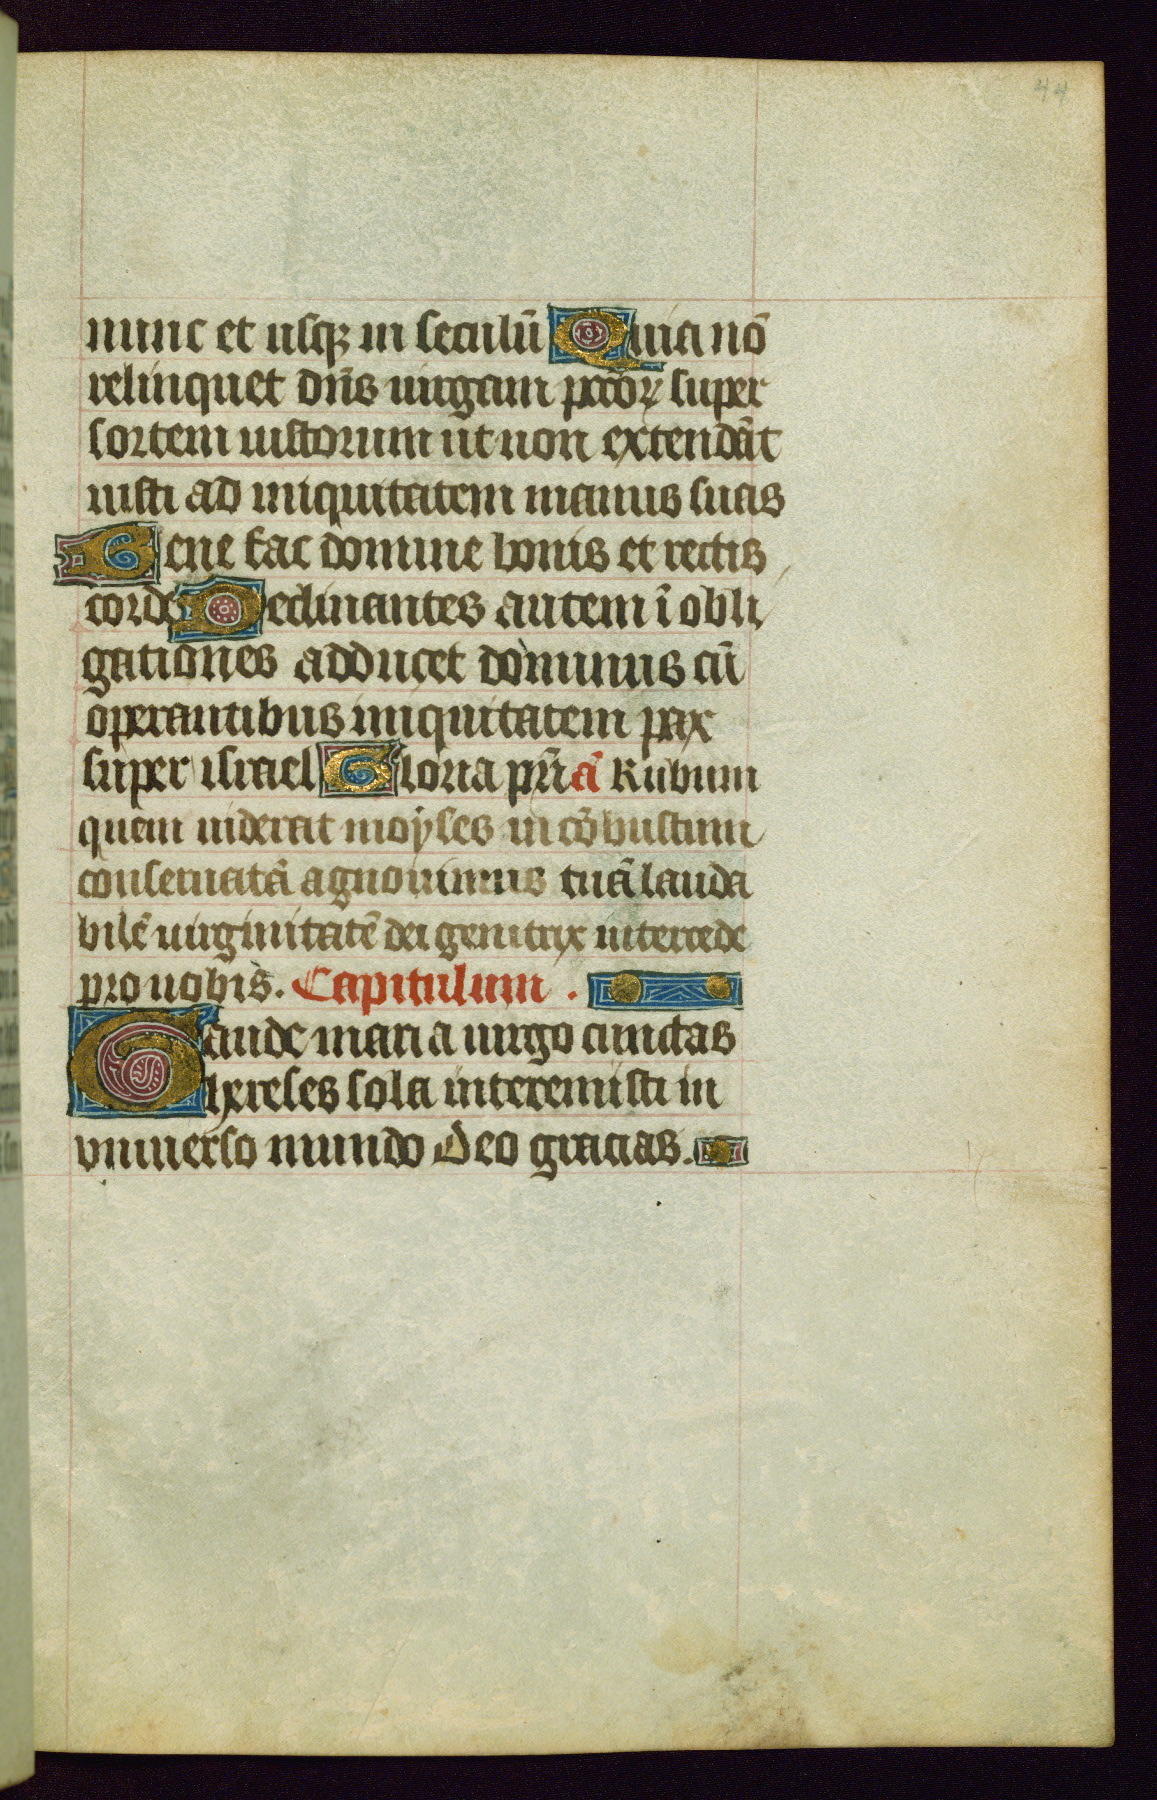 44
nunc et usqꝫ in seculū Quia nō
relinquet dn̄s uirgam pccōꝝ super
sortem iustorum ut non extendāt
iusti ad iniquitatem manus suas
Bene fac domine bonis et rectis
corde Declinantes autem ī obli
gationes adducet dominus cū
operantibus iniquitatem pax
super israel Gloria pr̄i ā Rubum
quem uiderat moÿses incōbustum
conseruatā agnouimus tuā lauda
bilē uirginitatē dei genitrix intercede
pro nobis. Capitulum .
Gaude maria uirgo cunctas
hereses sola interemisti in
vniuerso mundo Deo gracias.